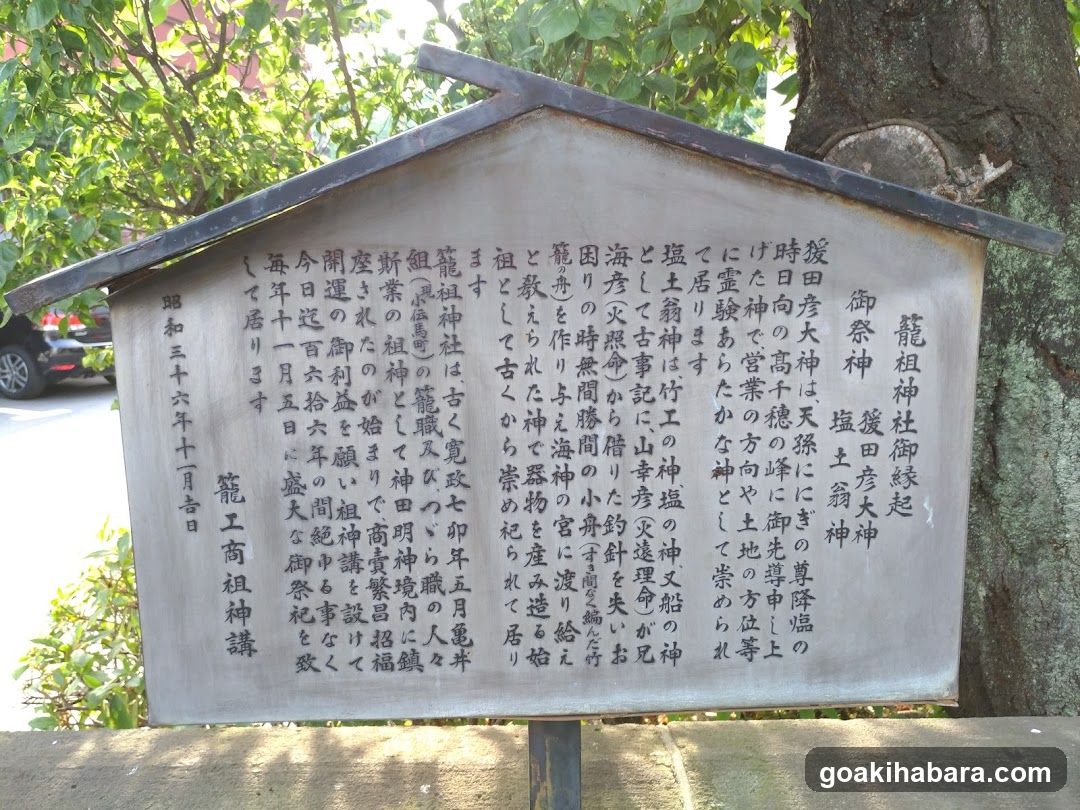 籠祖神社御縁起
御祭神 猨田彦大神
塩土翁神
猨田彦大神は、天孫ににぎの尊降臨の
時日向の高千穂の峰に御先導申し上
げた神で営業の方向や土地の方位等
に霊験あらたかな神として崇められ
て居ります
塩土翁神は竹工の神、塩の神、又船の神
として古事記に、山幸彦(火遠理命)が兄
海彦(火照命)から借りた釣針を失いお
困りの時無間勝間の小舟(すき間なく編んだ竹
籠の舟)を作り与え海神の宮に渡り給え
と教えられた神で器物を産み造る始
祖として古くから崇め祀られて居り
ます
籠祖神社は、古く寛政七卯年五月亀井
組(現小伝馬町)の籠職及び、つゞら職の人々
斯業の祖神として神田明神境内に鎮
座されたのが始まりで、商売繁昌招福
開運の御利益を願い祖神講を設けて
今日迄百六拾六年の間絶ゆる事なく
毎年十一月五日に盛大な御祭祀を致
して居ります
籠工商祖神講
昭和三十六年十一月吉日
goakihabara.com